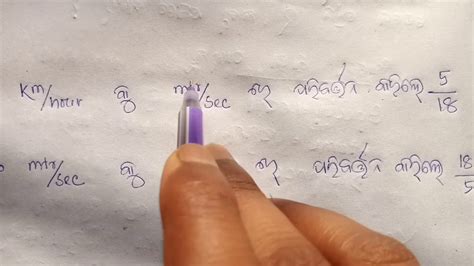 Km/hour କୁ mtr/sec ରେ ପରିବର୍ତ୍ତନ କରିଲେ 5/18
mtr/sec କୁ ରେ ପରିବର୍ତ୍ତନ କରିଲେ 18/5